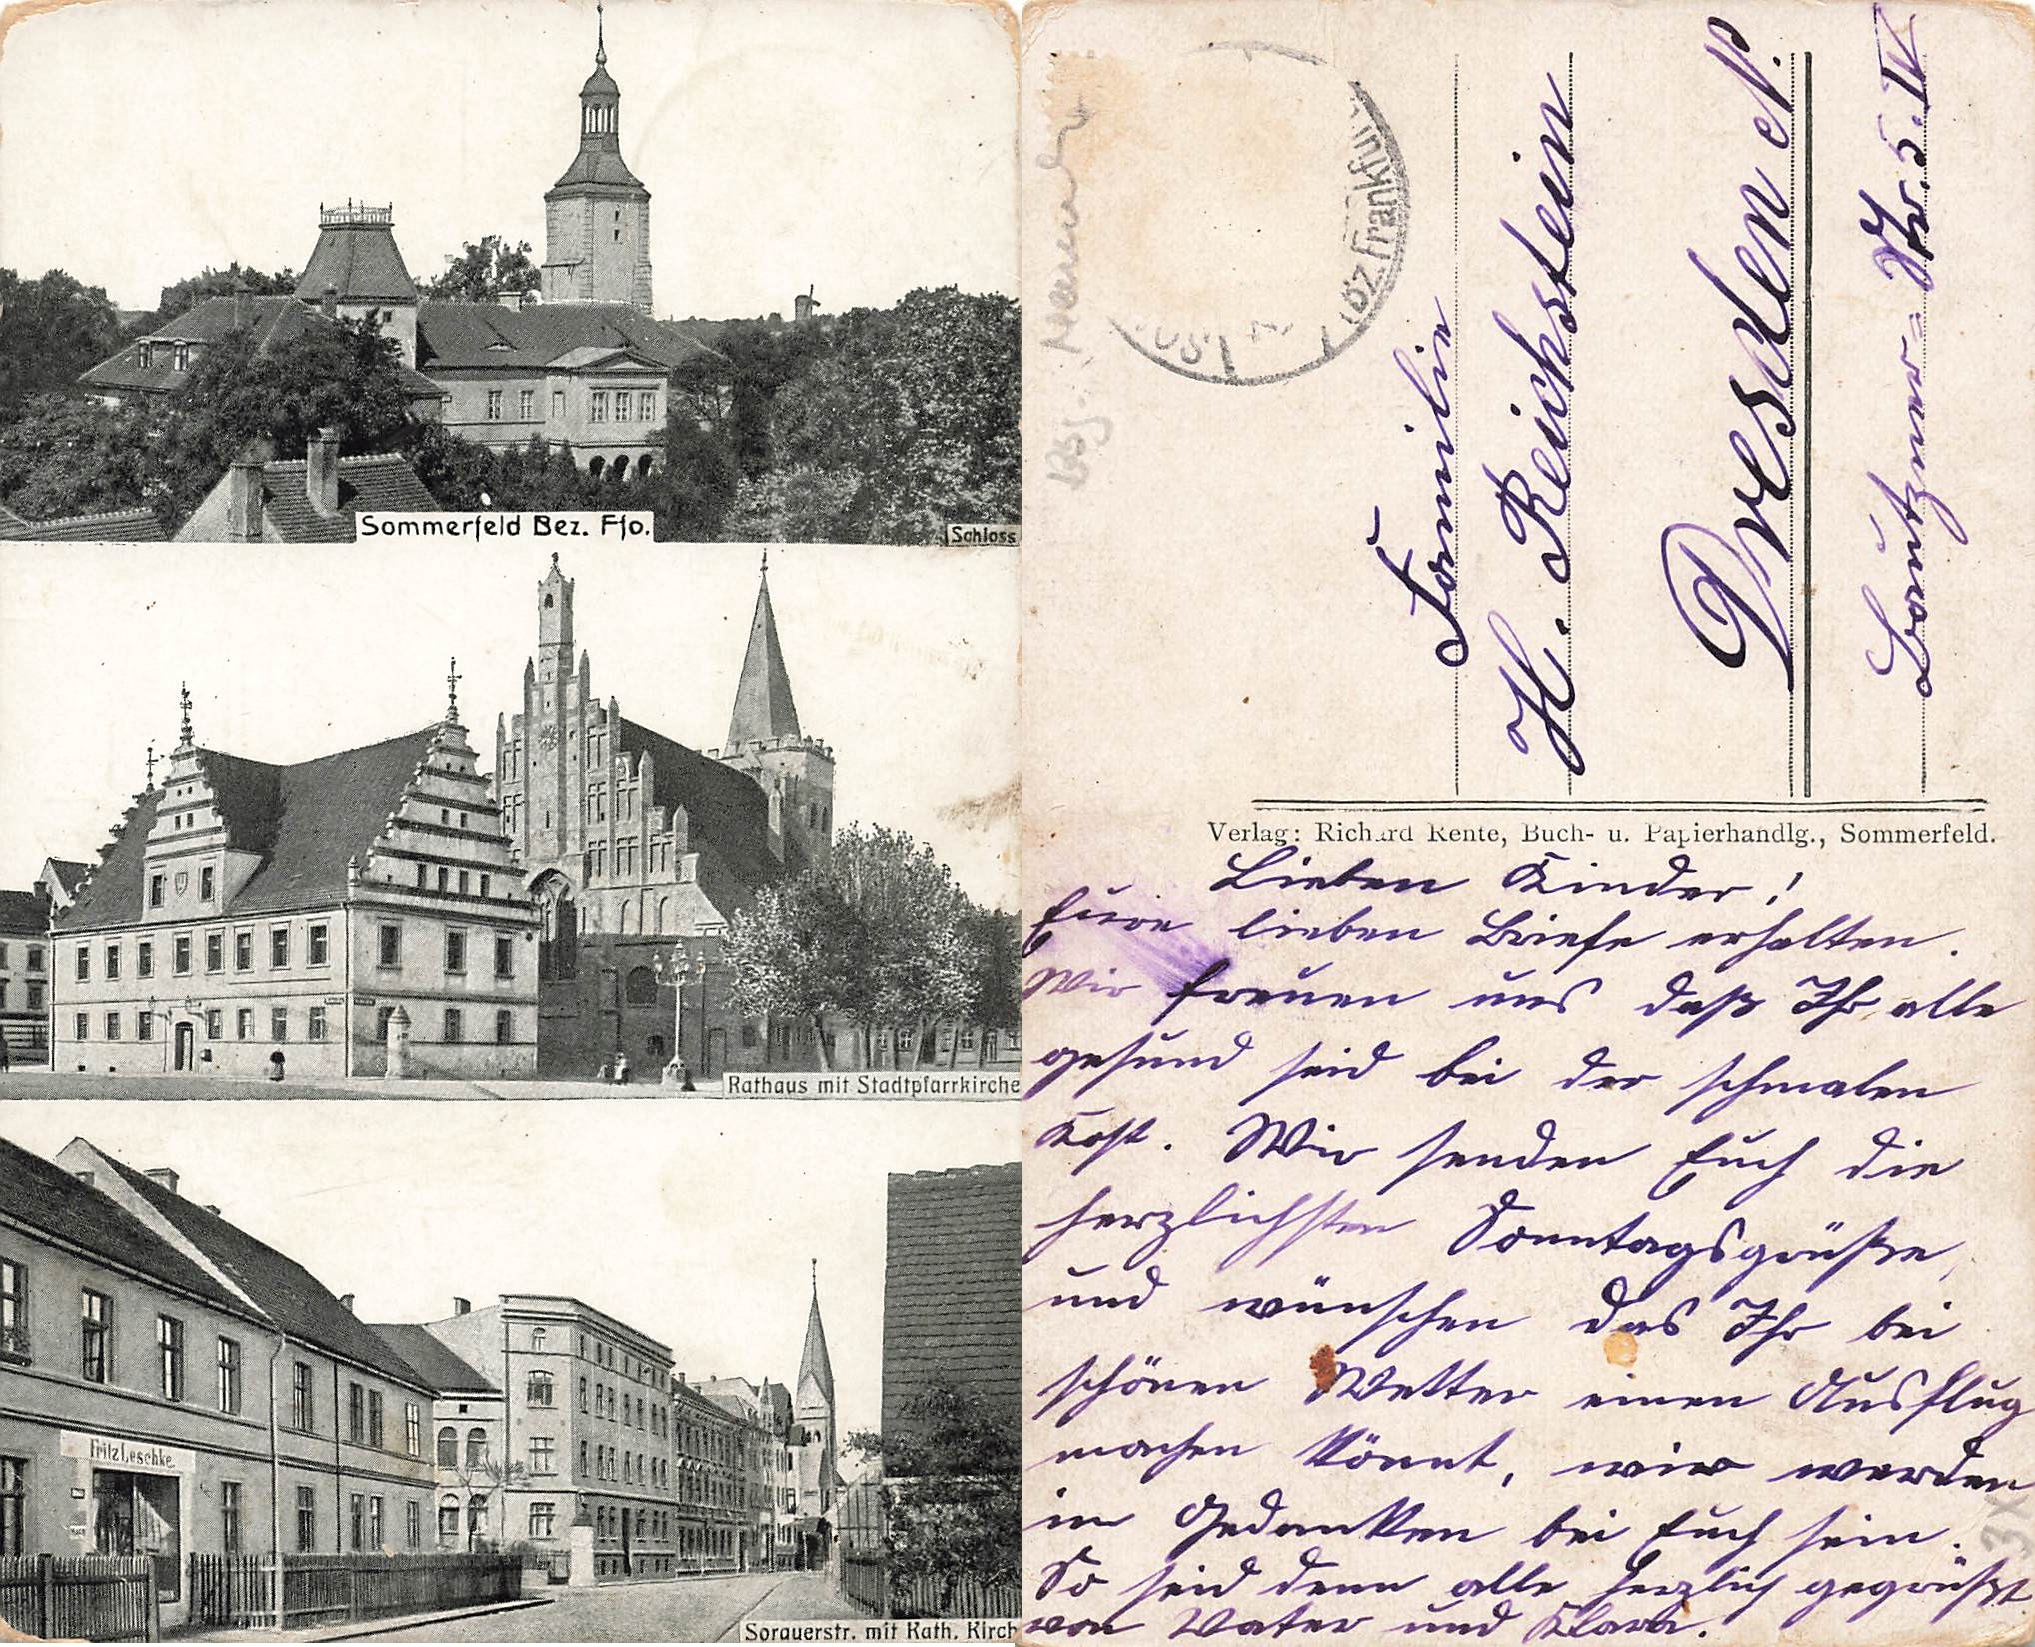 Sommerfeld Bez. Ffo.
Schloss
Rathaus mit Stadtpfarrkirche
Fritz Leschke.
Sorauerstr. mit Kath. Kirch
(Bz. Frankfur
Familie
H. Reichstein
Dresden N.
Bautzner-Str. 5. IV
Verlag: Richard Rente, Buch- u. Papierhandlg., Sommerfeld.
Lieben Kinder!
Eure lieben Briefe erhalten.
Wir freuen uns daß Ihr alle
gesund seid bei der schmalen
Kost. Wir senden Euch die
herzlichsten Sonntagsgrüße,
und wünschen das Ihr bei
schönen Wetter einen Ausflug
machen könnt, wir werden
im Gedanken bei Euch sein.
So seid denn alle herzlich gegrüßt
von Vater und Klara.